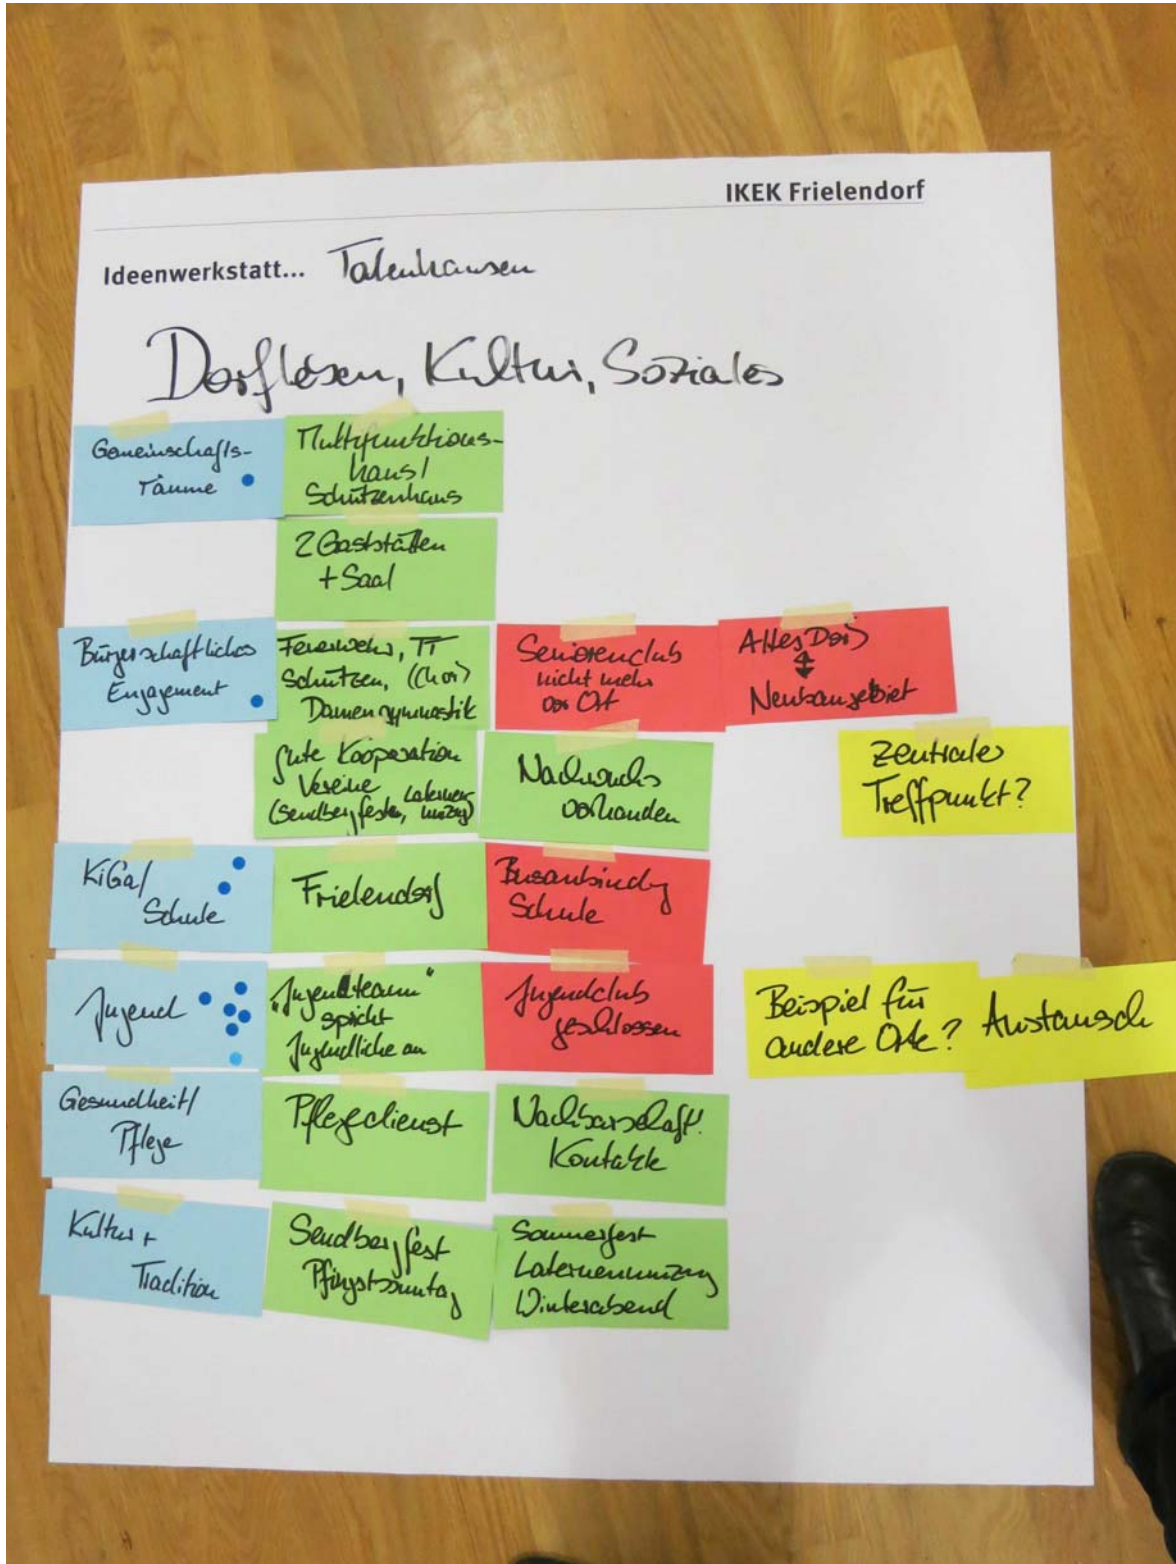 IKEK Frielendorf
Ideenwerkstatt... Todenhausen
Dorfleben, Kultur, Soziales
Gemeinschafts-
räume
Multifunktions-
haus/
Schützenhaus
2 Gaststätten
+ Saal
Bürgerschaftliches
Engagement
Feuerwehr, TT
Schützen, (Chor)
Damengymnastik
Seniorenclub
nicht mehr
vor Ort
Altes Dorf
↕
Neubaugebiet
gute Kooperation
Vereine
(Sendbergfest, Laternenumzug)
Nachwuchs
vorhanden
Zentraler
Treffpunkt?
KiGa/
Schule
Frielendorf
Busanbindg
Schule
Jugend
"Jugendteam"
spricht
Jugendliche an
Jugendclub
geschlossen
Beispiel für
andere Orte?
Austausch
Gesundheit/
Pflege
Pflegedienst
Nachbarschaftl.
Kontakte
Kultur +
Tradition
Sendbergfest
Pfingstsonntag
Sommerfest
Laternenumzug
Winterabend